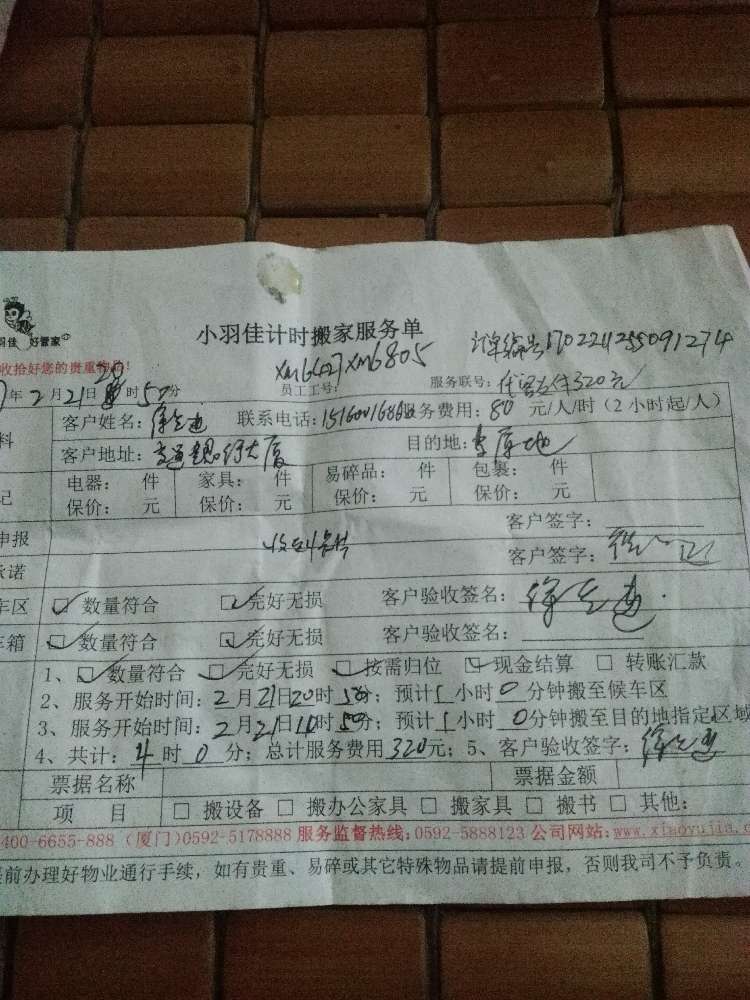 羽佳 好管家
小羽佳计时搬家服务单
订单编号1702211255091274
收拾好您的贵重物品!
XM6427 XM6805
年2月21日 时50分
员工工号:
服务联号:
320元
料
客户姓名:
联系电话:
服务费用:80 元/人/时(2小时起/人)
客户地址:
大厦
目的地:
记
电器: 件
家具: 件
易碎品: 件
包裹: 件
保价: 元
保价: 元
保价: 元
保价: 元
申报
客户签字:
承诺
客户签字:
车区
数量符合
完好无损
客户验收签名:
车箱
数量符合
完好无损
客户验收签名:
1、 数量符合 完好无损 按需归位 现金结算 转账汇款
2、服务开始时间:2月21日20时50分;预计1小时0分钟搬至候车区
3、服务开始时间:2月21日 时50分;预计1小时0分钟搬至目的地指定区域
4、共计:4时0分;总计服务费用320元;5、客户验收签字:
票据名称
票据金额
项 目
搬设备 搬办公家具 搬家具 搬书 其他:
400-6655-888(厦门)0592-5178888 服务监督热线:0592-5888123 公司网站:www.xiaoyujia.c
前办理好物业通行手续,如有贵重、易碎或其它特殊物品请提前申报,否则我司不予负责。